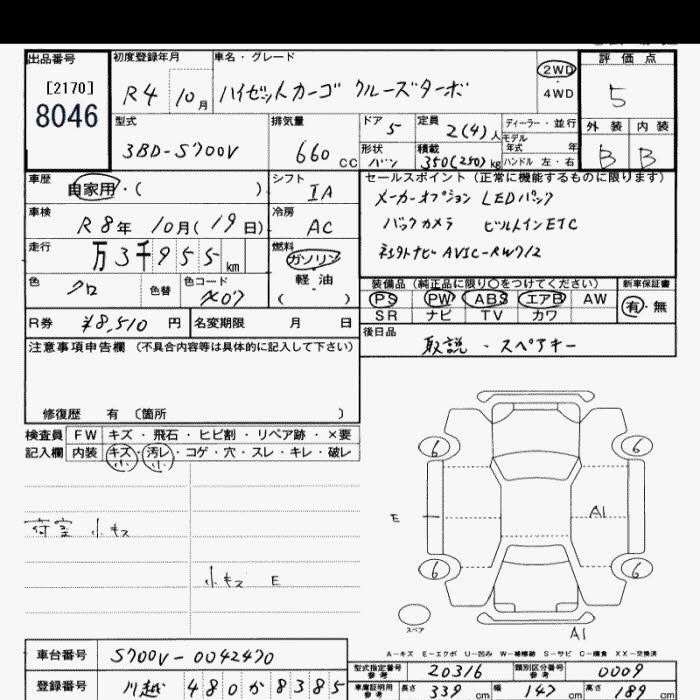 出品番号 初度登録年月 車名・グレード 評価点
[2170]
8046
R4 10月 ハイゼットカーゴ クルーズターボ 2WD 4WD 5
型式 排気量 ドア 5 定員 2(4)人 ディーラー・並行 外装 内装
3BD-S700V 660 CC 形状 バン 積載 350(250)kg モデル年式 年 ハンドル 左・右 B B
車歴 自家用・( ) シフト IA セールスポイント (正常に機能するものに限ります)
車検 R8年 10月(19日) 冷房 AC
メーカーオプション LEDパック
バックカメラ ビルトインETC
社外ナビ AVIC-RW712
走行 万3千955km 燃料 ガソリン 軽・油 ( )
色 クロ 色替 色コード X07
装備品 (純正品に限り〇をつけてください) 新車保証書
PS PW ABS エアB AW 有・無
SR ナビ TV カワ
R券 ¥8,510 円 名変期限 月 日
後日品 取説・スペアキー
注意事項申告欄 (不具合内容等は具体的に記入して下さい)
修復歴 有 〔箇所 〕
検査員 FW キズ・飛石・ヒビ割・リペア跡・×要
記入欄 内装 キズ・汚レ・コゲ・穴・スレ・キレ・破レ
小 小
荷室 小キズ
小キズ E
6 6
E A1
6 6
スペア
A1
A-キズ E-エクボ U-凹み W-補修跡 S-サビ C-腐食 XX-交換済
車台番号 S700V-0042470
登録番号 川越 480か8385
型式指定番号 参考 20316 類別区分番号 参考 0009
車庫証明用 参考 長さ 339cm 幅 147cm 高さ 189cm